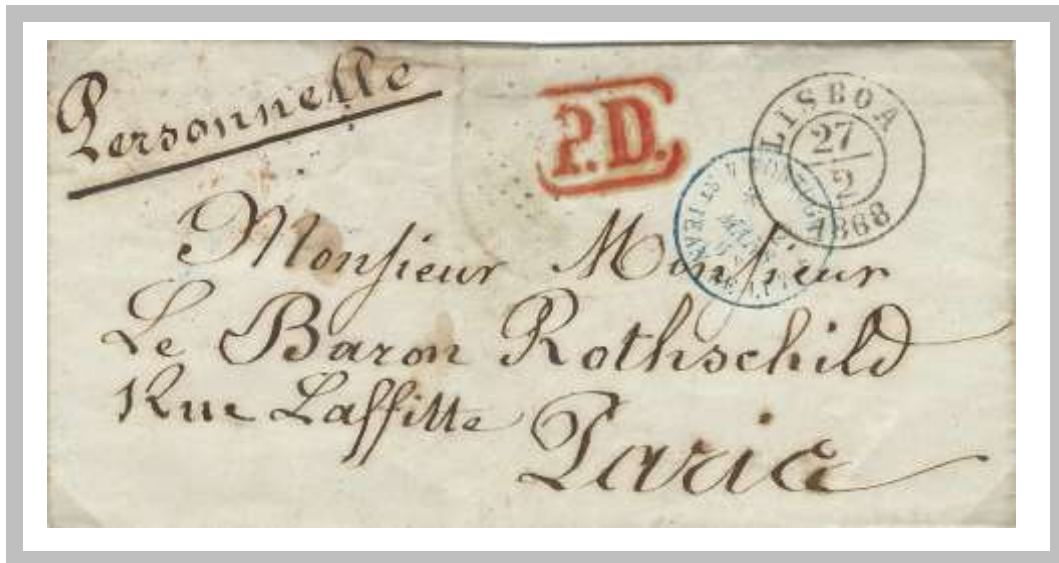 Personnelle
P.D.
LISBOA
27
2
1868
Monsieur Monsieur
Le Baron Rothschild
Rue Laffitte
Paris